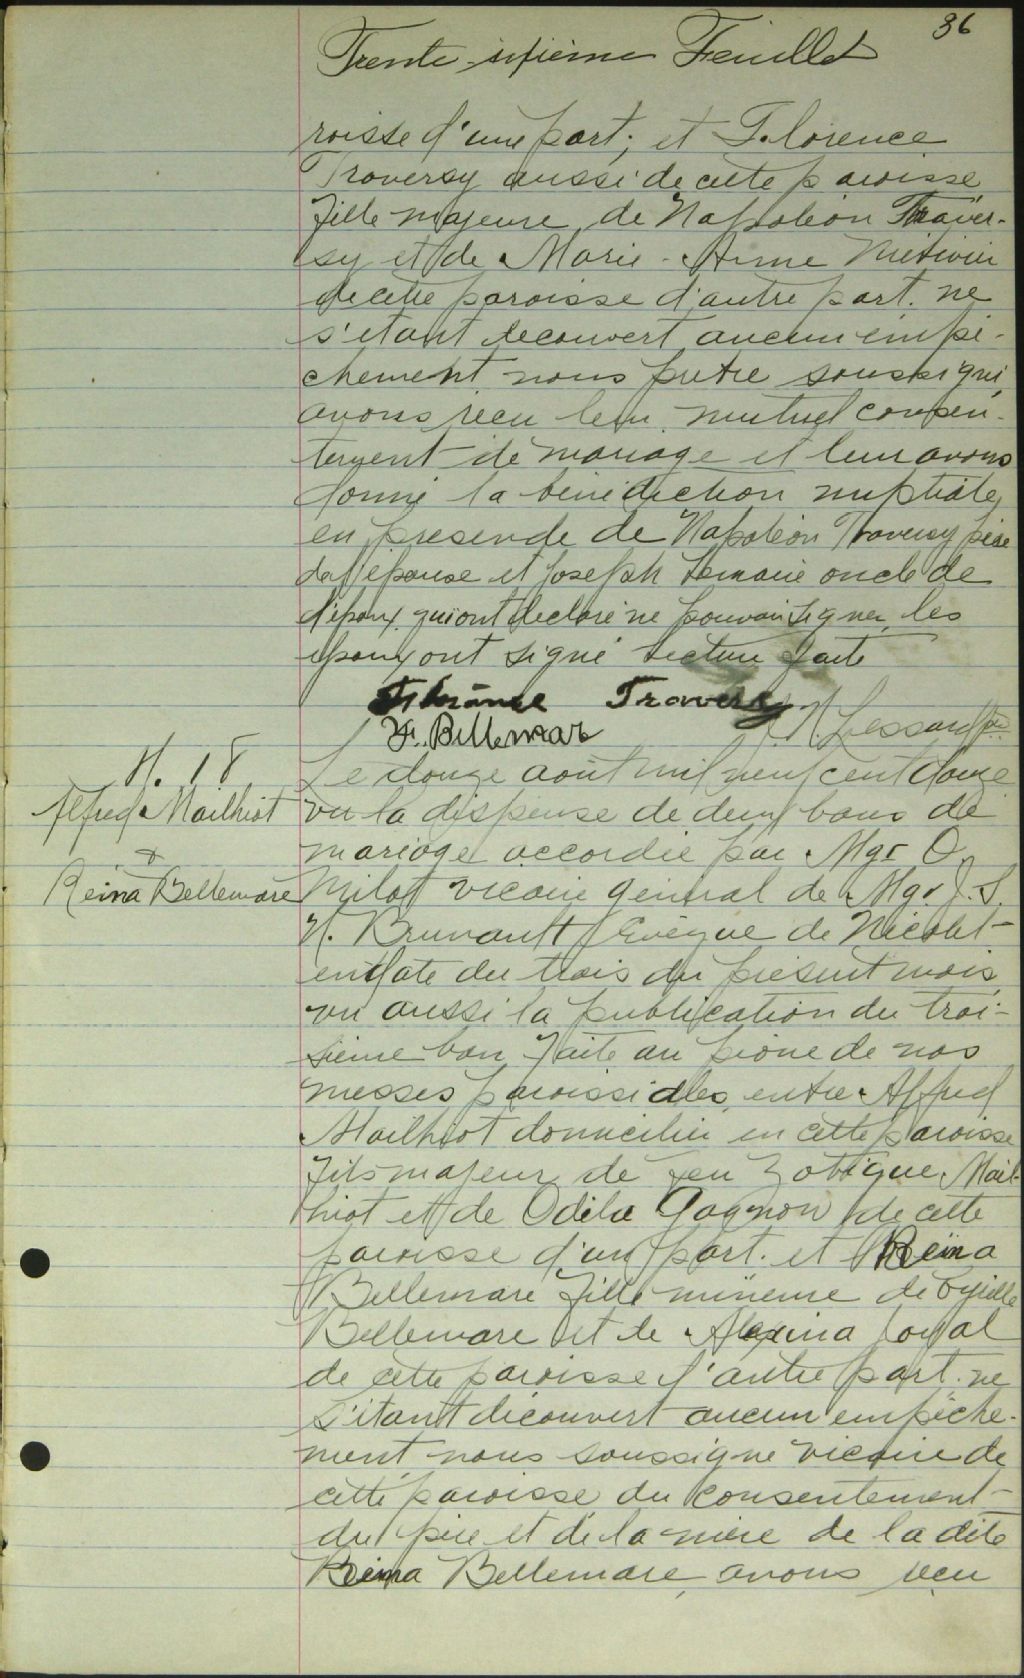 36
Trente-sixième Feuillet
roisse d'une part; et Florence
Traversy aussi de cette paroisse
fille majeure de Napoléon Traver-
sy et de Marie-Anne Métivier
de cette paroisse d'autre part. ne
s'étant découvert aucun empê-
chement nous prêtre soussigné
avons reçu leur mutuel consen-
tement de mariage et leur avons
donné la bénédiction nuptiale
en présence de Napoléon Traversy père
de l'épouse et Joseph Lemaire oncle de
l'époux qui ont déclaré ne pouvoir signer, les
époux ont signé lecture faite
Traversy
F. Bellemar
N. Lessard ptre
M. 18
Alfred Mailhiot
&
Reina Bellemare
Le douze août mil neuf cent douze
vu la dispense de deux bans de
mariage accordée par Mgr O.
Milot vicaire général de Mgr. J. S.
H. Brunault Évêque de Nicolet
en date du trois du présent mois,
vu aussi la publication du troi-
sième ban faite au prône de nos
messes paroissiales, entre Alfred
Mailhiot domicilié en cette paroisse
fils majeur de feu Zotique Mail-
hiot et de Odila Gagnon de cette
paroisse d'un part. et Reina
Bellemare fille mineure de
Bellemare et de Alexina Joyal
de cette paroisse d'autre part. ne
s'étant découvert aucun empêche-
ment nous soussigné vicaire de
cette paroisse du consentement
du père et de la mère de la dite
Reina Bellemare, avons reçu